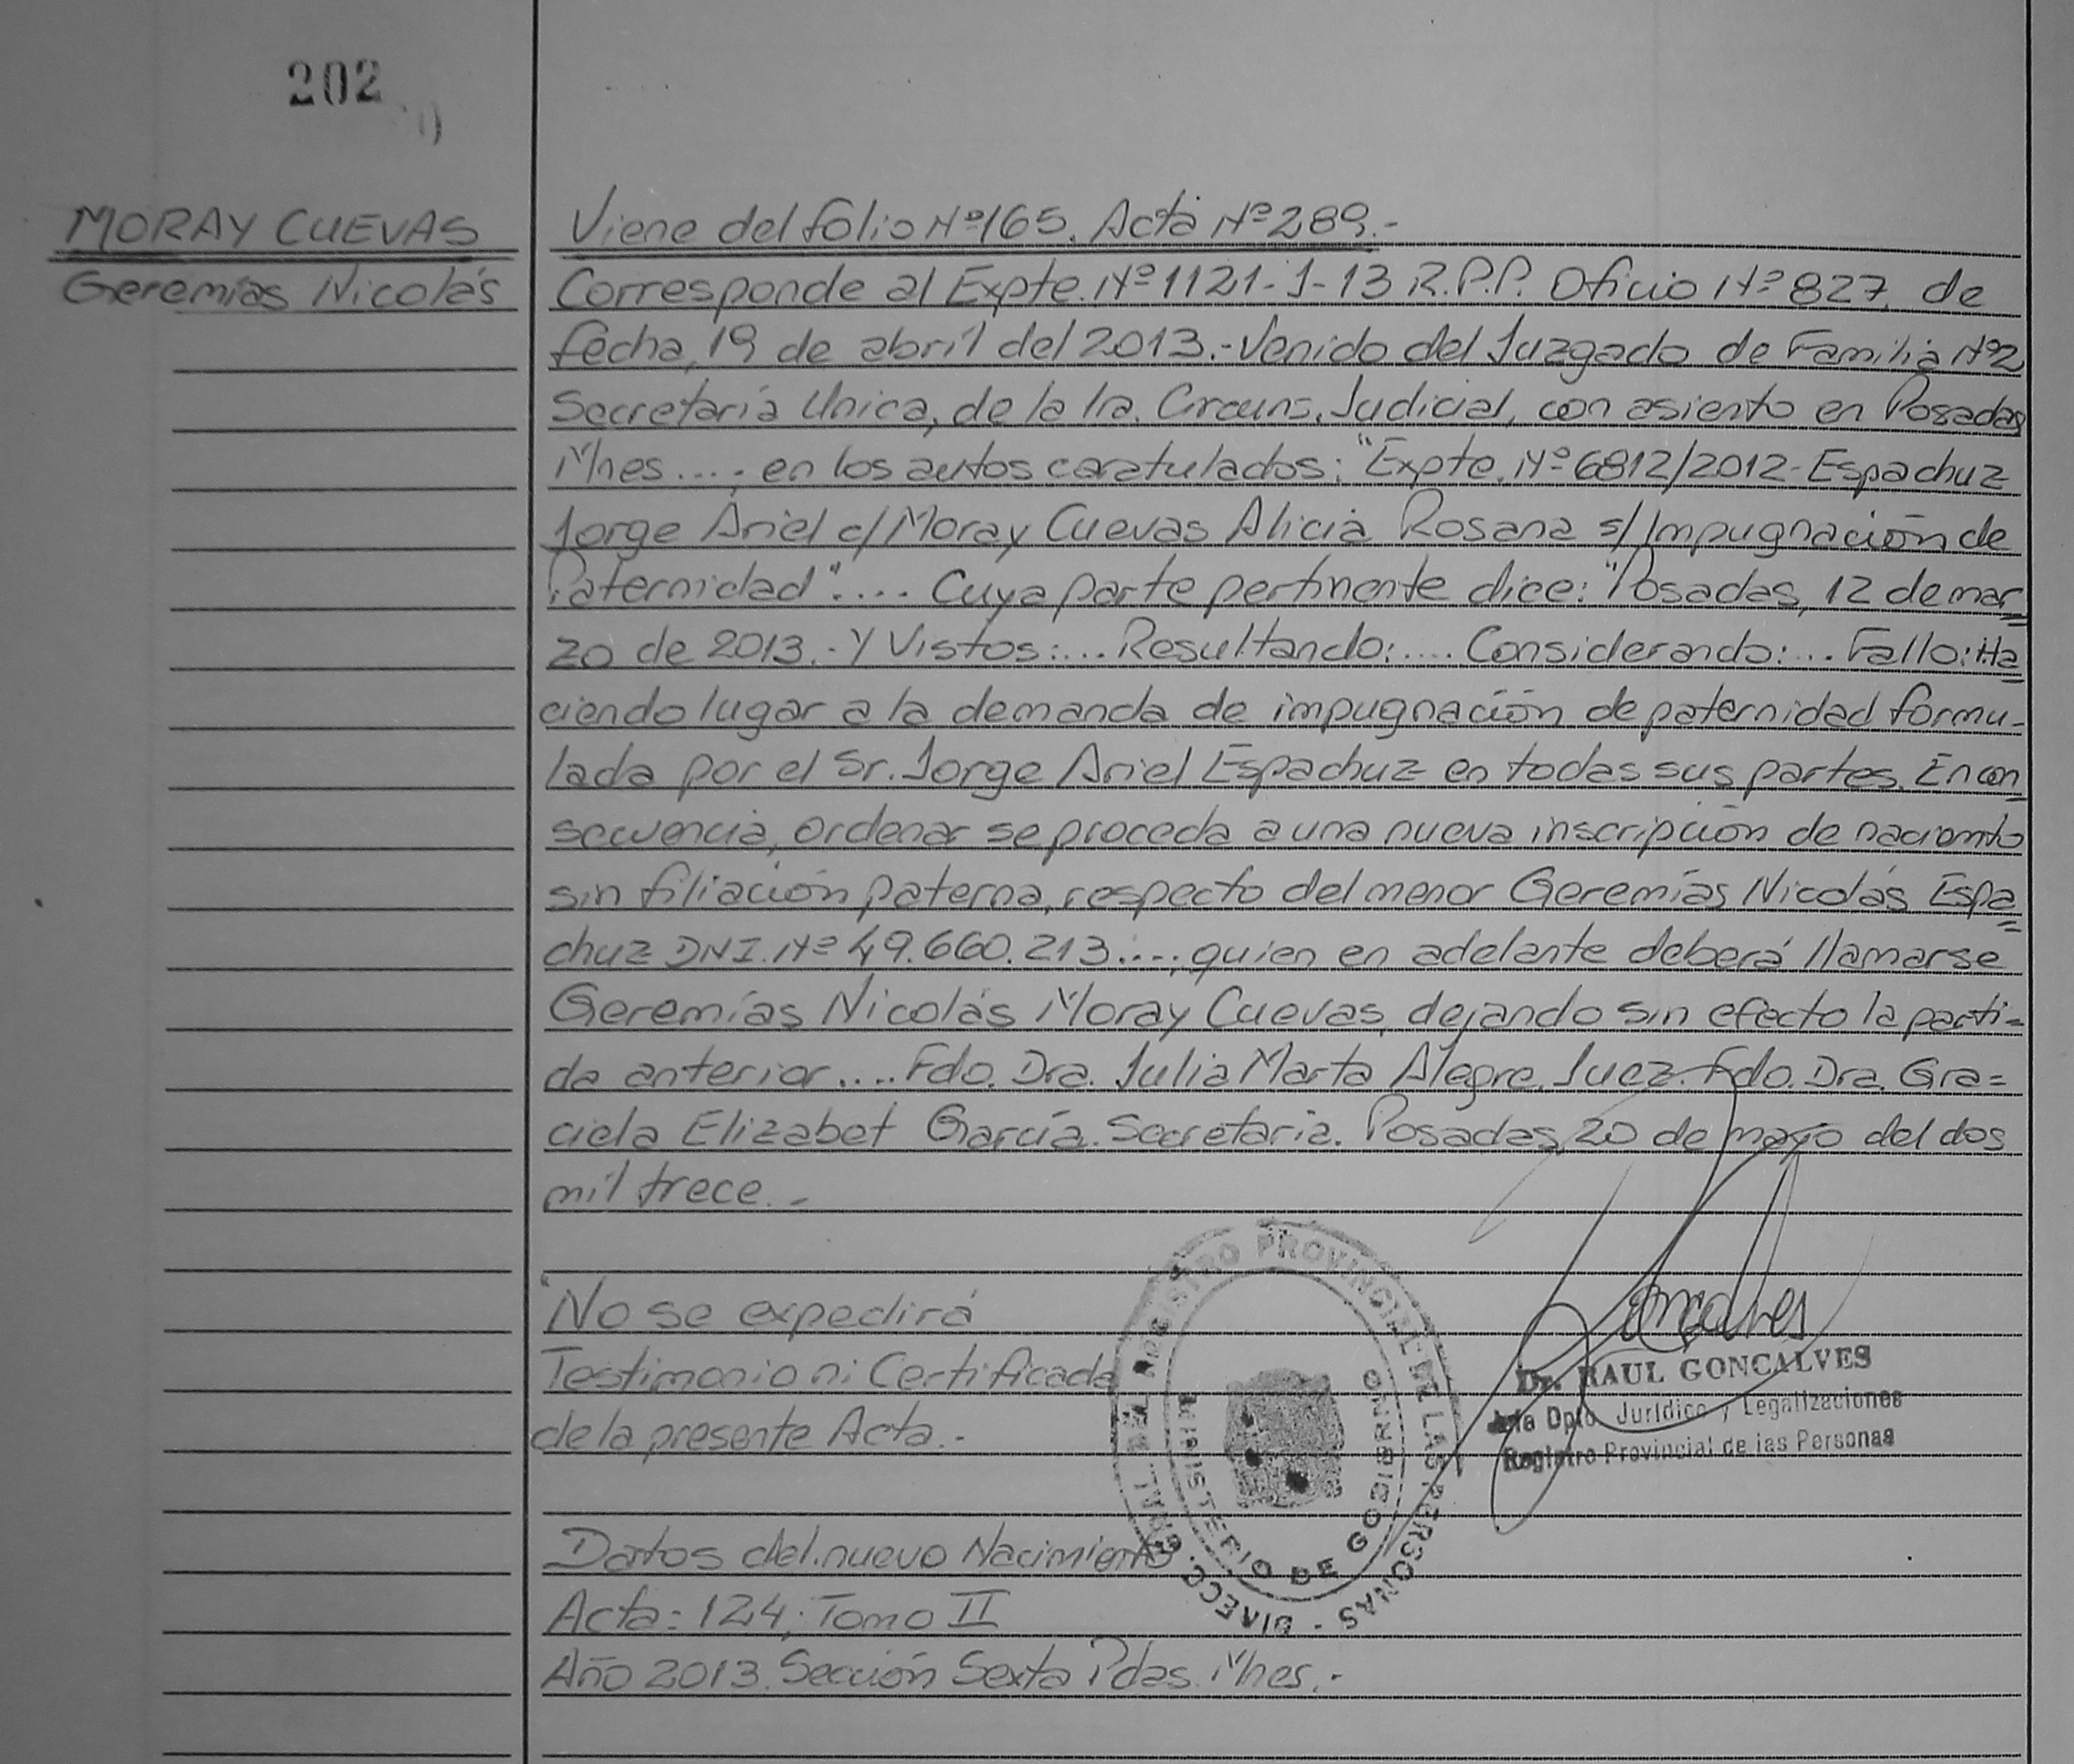 202
MORAY CUEVAS
Geremías Nicolás
Viene del folio Nº165. Acta Nº289.-
Corresponde al Expte. Nº1121-J-13 R.P.P. Oficio Nº827, de
fecha, 19 de abril del 2013.-Venido del Juzgado de Familia Nº2
Secretaría Unica, de la 1ra. Circuns. Judicial, con asiento en Posadas
Mnes....; en los autos caratulados: "Expte. Nº6812/2012-Espachuz
Jorge Ariel c/Moray Cuevas Alicia Rosana s/Impugnación de
Paternidad".... Cuya parte pertinente dice: "Posadas, 12 de mar
zo de 2013.-Y Vistos:... Resultando:.... Considerando:... Fallo: Ha
ciendo lugar a la demanda de impugnación de paternidad formu-
lada por el Sr. Jorge Ariel Espachuz en todas sus partes. En con
secuencia, ordenar se proceda a una nueva inscripción de nacimiento
sin filiación paterna, respecto del menor Geremías Nicolás Espa
chuz DNI. Nº 49.660.213....; quien en adelante deberá llamarse
Geremías Nicolás Moray Cuevas, dejando sin efecto la parti=
da anterior.... Fdo. Dra. Julia Marta Alegre. Juez. Fdo. Dra. Gra=
ciela Elizabet García. Secretaria. Posadas, 20 de mayo del dos
mil trece.-
"No se expedirá
Testimonio ni Certificado
de la presente Acta.-
DIRECC. GRAL. DEL REGISTRO PROVINCIAL DE LAS PERSONAS -
MINISTERIO DE GOBIERNO
Goncalves
Dr. RAUL GONCALVES
Dpto. Jurídico y Legalizaciones
Registro Provincial de las Personas
Datos del nuevo Nacimiento
Acta: 124; Tomo II
Año 2013. Sección Sexta Pdas. Mnes.-